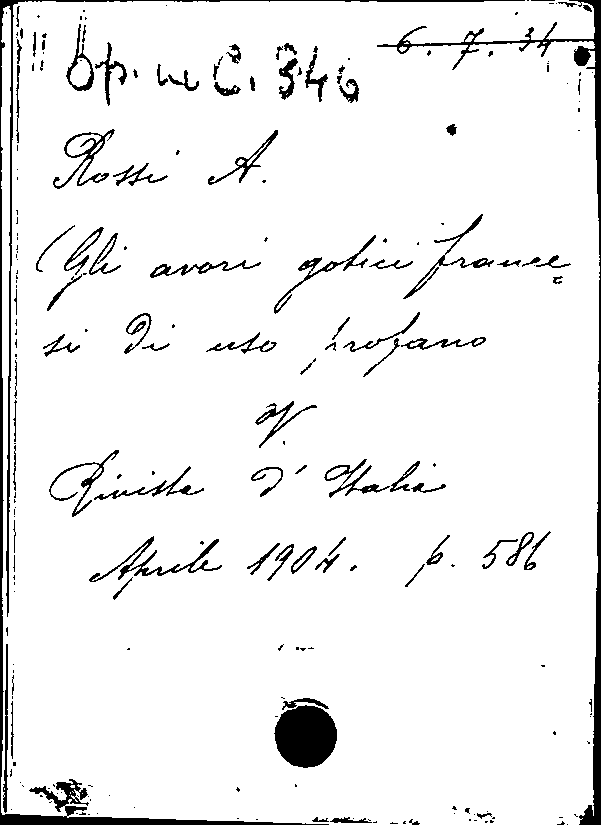 6. 7. 34
Op. in C. 346
Rossi A.
(Gli avori gotici france=
si di uso profano
V.
Rivista d' Italia
Aprile 1904. p. 586